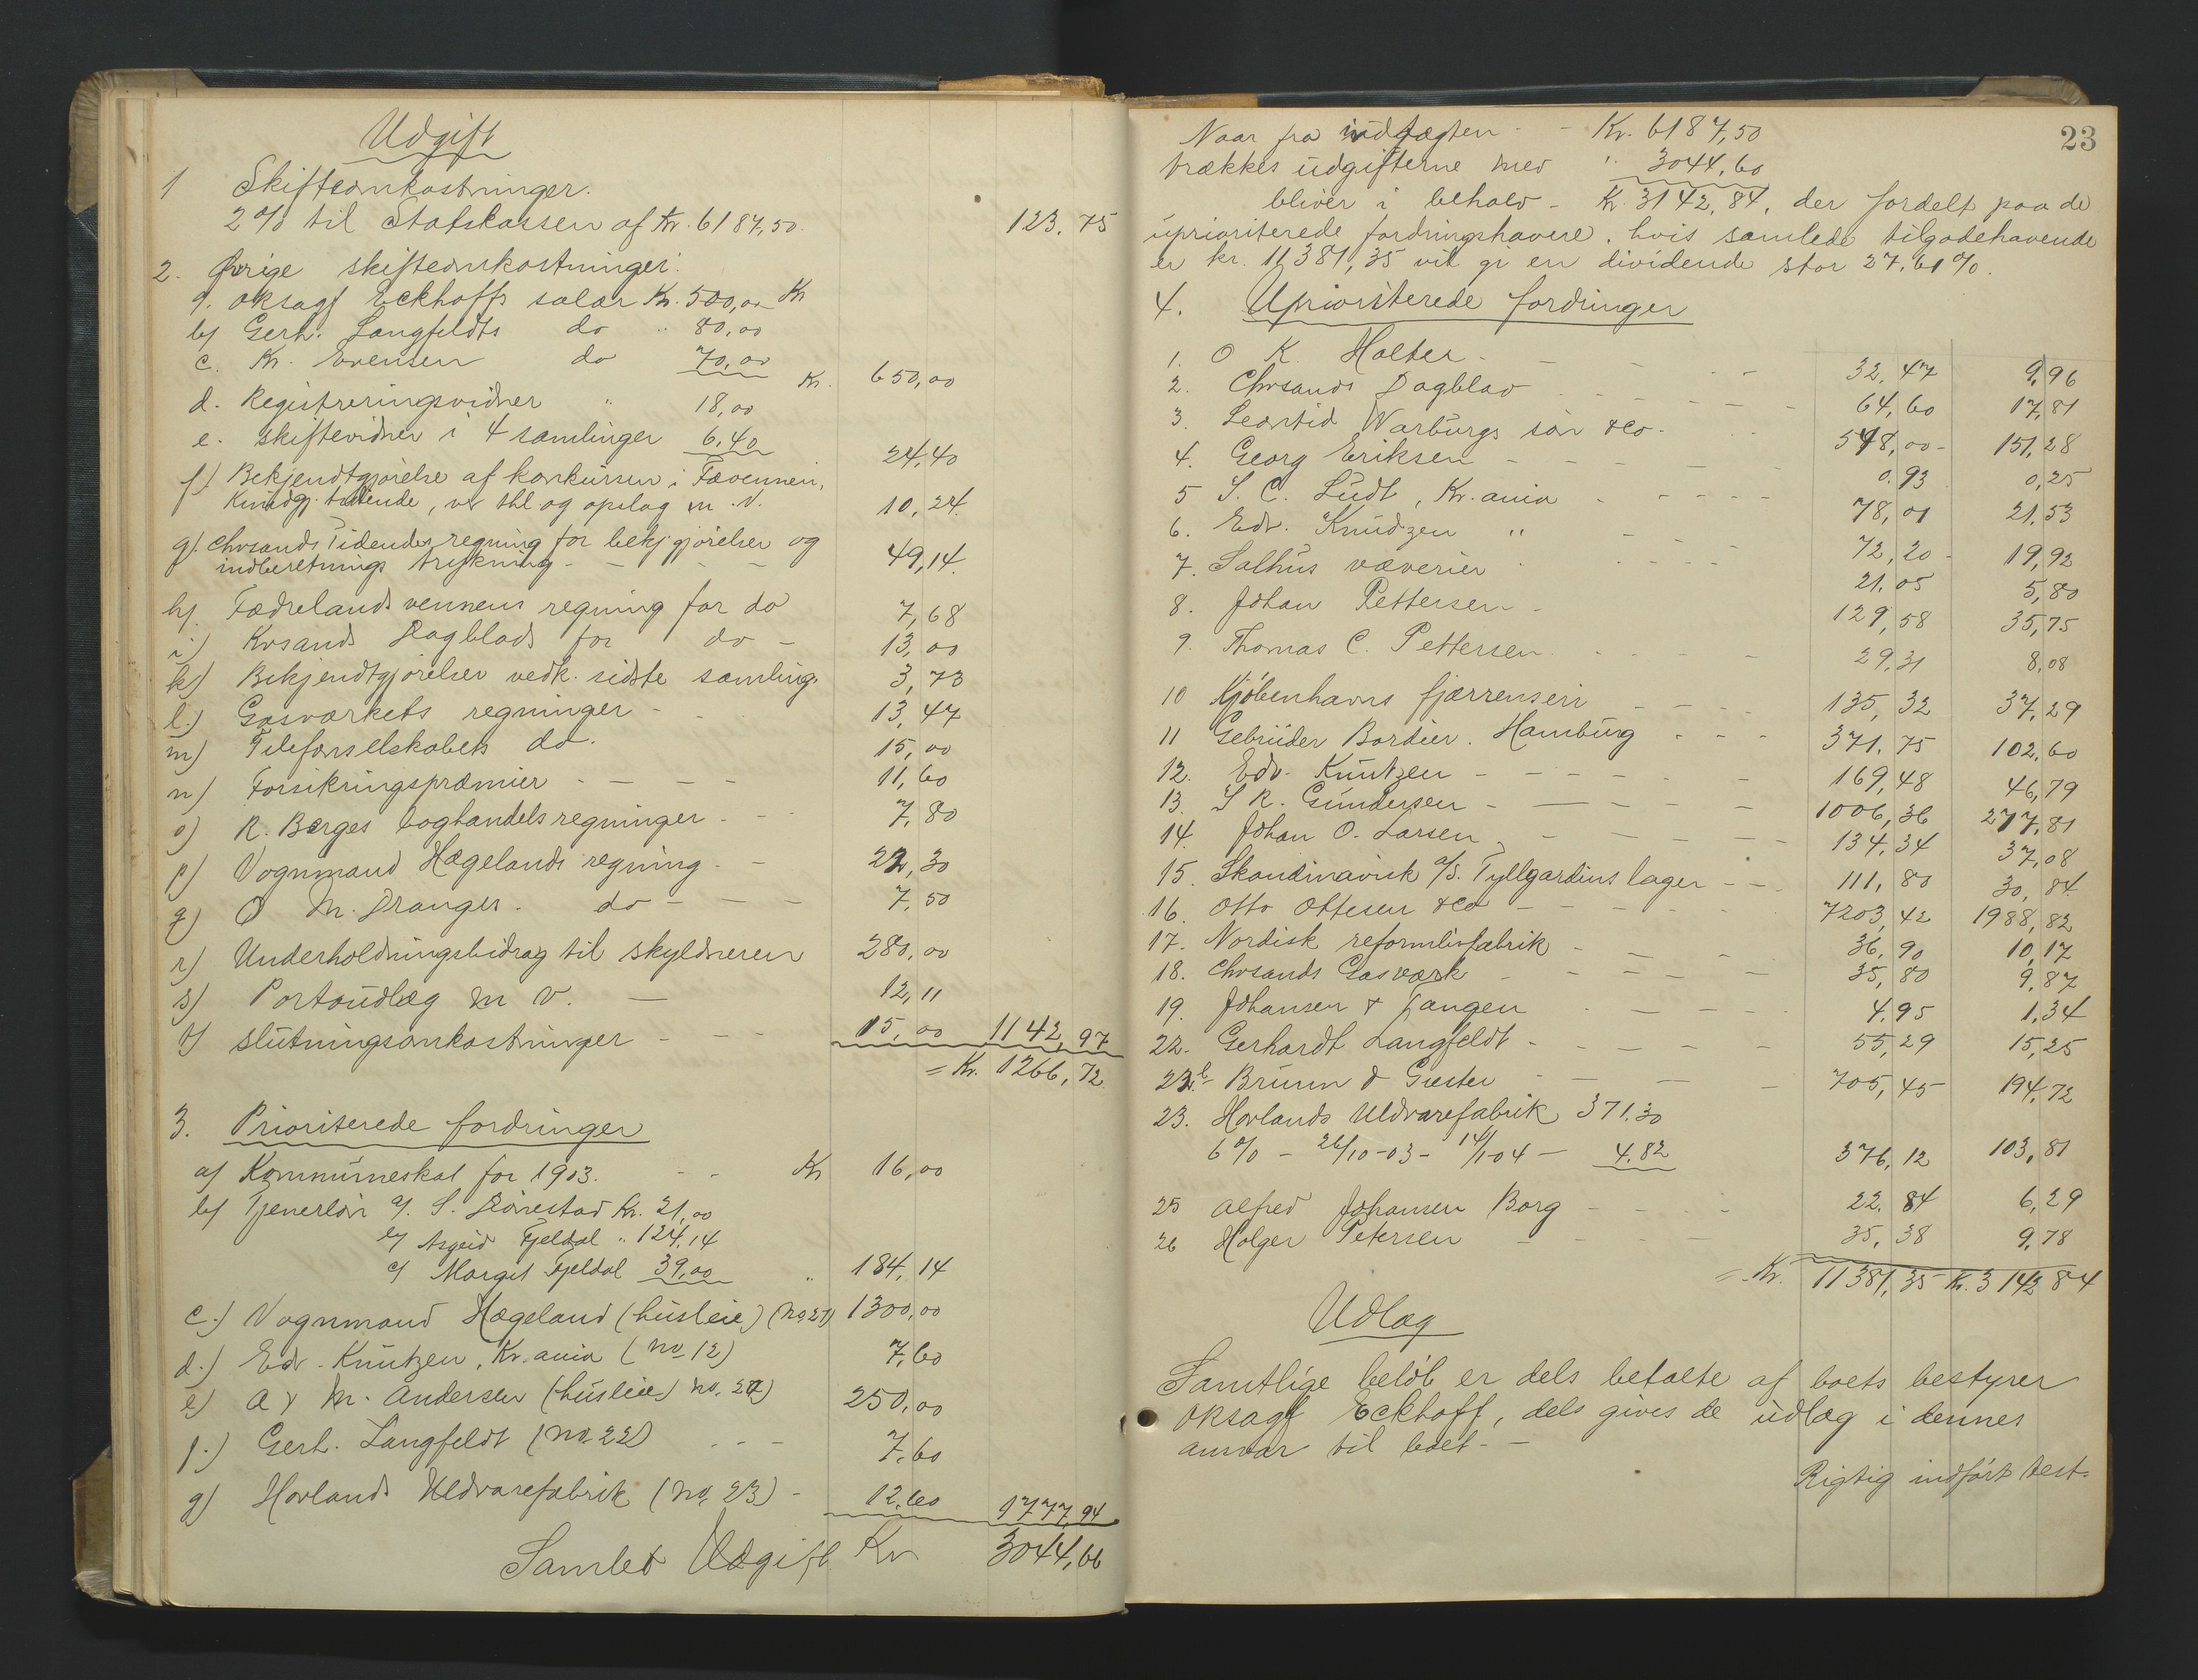 Udgift
1 Skifteomkostninger.
2 % til Statskassen af Kr. 6187,50. 123,75
2. Øvrige skifteomkostninger.
a. oksagf Eckhoffs salær Kr. 500,00 Kr
b) Gerh. Langfeldts do " 80,00
c. Kr. Evensen do 70,00 Kr. 650,00
d. Registreringsvidner " 18,00
e. skiftevidner i 4 samlinger 6,40 24,40
f) Bekjendtgjørelse af konkursen i Fævennen,
Kundgj. tidende, ved thl og opslag m. V. 10,24
g). Chrsands Tidendes regning for bekj.gjørelser og
indberetnings trykning - - - - 49,14
h). Fædrelandsvennens regning for do 7,68
i) Krsands Dagblads for do - 13,00
k) Bekjendtgjørelser vedk. sidste samling. 3,73
l.) Gasværkets regninger - - 13,47
m) Telefonselskabets do. 15,00
n) Forsikringspræmier - - - - 11,60
o) R. Børges boghandels regninger - - - 7,80
p) Vognmand Hægelands regning - - 22,30
q) O M. Dranges. do - - - 7,50
r) Underholdningsbidrag til skyldneren 280,00
s) Portoudlæg m V. - 12,11
t) slutningsomkostninger - - - 15,00 1142,97
= Kr. 1266,72.
3. Prioriterede fordringer
a) Kommuneskat for 1903. - - Kr 16,00
b) Tjenerløn a/. S. Dønestad Kr. 21,00
b/ Asgeid Fjeldal " 124,14
c/ Margit Fjeldal 39,00 " 184,14
c.) Vognmand Hægeland (husleie) (No 27) 1300,00
d.) Edv. Knutzen, Kr.ania (no 12) 7,60
e) A & M. Andersen (husleie) no. 24) 250,00
f.) Gerh. Langfeldt (No. 22) - - - 7,60
g) Hovlands Uldvarefabrik (No. 23) - 12,60 1777,94
Samlet Udgift Kr 3044,66
23
Naar fra indtægten - - Kr. 6187,50
trækkes udgifterne med " 3044,60
bliver i behold - Kr. 3142,84, der fordelt paa de
uprioriterede fordringshavere, hvis samlede tilgodehavende
er kr. 11,381,35 vil gi en dividende stor 27,61 %.
4. Uprioriterede fordringer
1. O K. Holter - - - - - 32,47 9,96
2. Chrsands Dagblad - - - - - 64,60 17,81
3. Leontid Warburgs søn & Co. - - 548,00 - 151,28
4. Georg Eriksen - - - - - 0.93 0,25
5 S. C. Ludt, Kr.ania - - - - - 78,01 21,53
6. Edv. Knudzen " - - - - 72,20 - 19,92
7. Salhus væverier - - - - - 21,05 5,80
8. Johan Pettersen - 129,58 35,75
9. Thomas C. Pettersen - - - - 29,31 8,08
10 Kjøbenhavns fjærrenseri - - - - 135,32 37,29
11 Gebrüder Bordier. Hamburg - - - 371,75 102,60
12. Edv. Knutzen - - - - - - 169,48 46,79
13. S R. Gundersen - - - - - 1006,36 277,81
14. Johan O. Larsen - - - - - 134,34 37,08
15. Skandinavisk a/s. Tyllgardins lager - - - 111,80 30,84
16. Otto Ottesen & Co - - - - - 7203,42 1988,82
17. Nordisk reformlivfabrik - - - - 36,90 10,17
18. Chrsands Gasværk - - - - - 35,80 9,87
19. Johansen & Tangen - - - - - 4,95 1,34
22. Gerhardt Langfeldt - - - - - 55,29 15,25
22.b Brunn & Giester - - - - - 705,45 194,72
23. Hovlands Uldvarefabrik 371,30
6 % - 26/10-03 - 14/1-04 - 4,82 376,12 103,81
25 Alfred Johansen Borg - - - - 22,84 6,29
26 Holger Petersen - - - - 35,38 9,78
= Kr. 11381,35 Kr. 3142,84
Udlæg
Samtlige beløb er dels betalte af boets bestyrer
oksagf Eckhoff, dels gives de udlæg i dennes
ansvar til boet. -
Rigtig indført test.